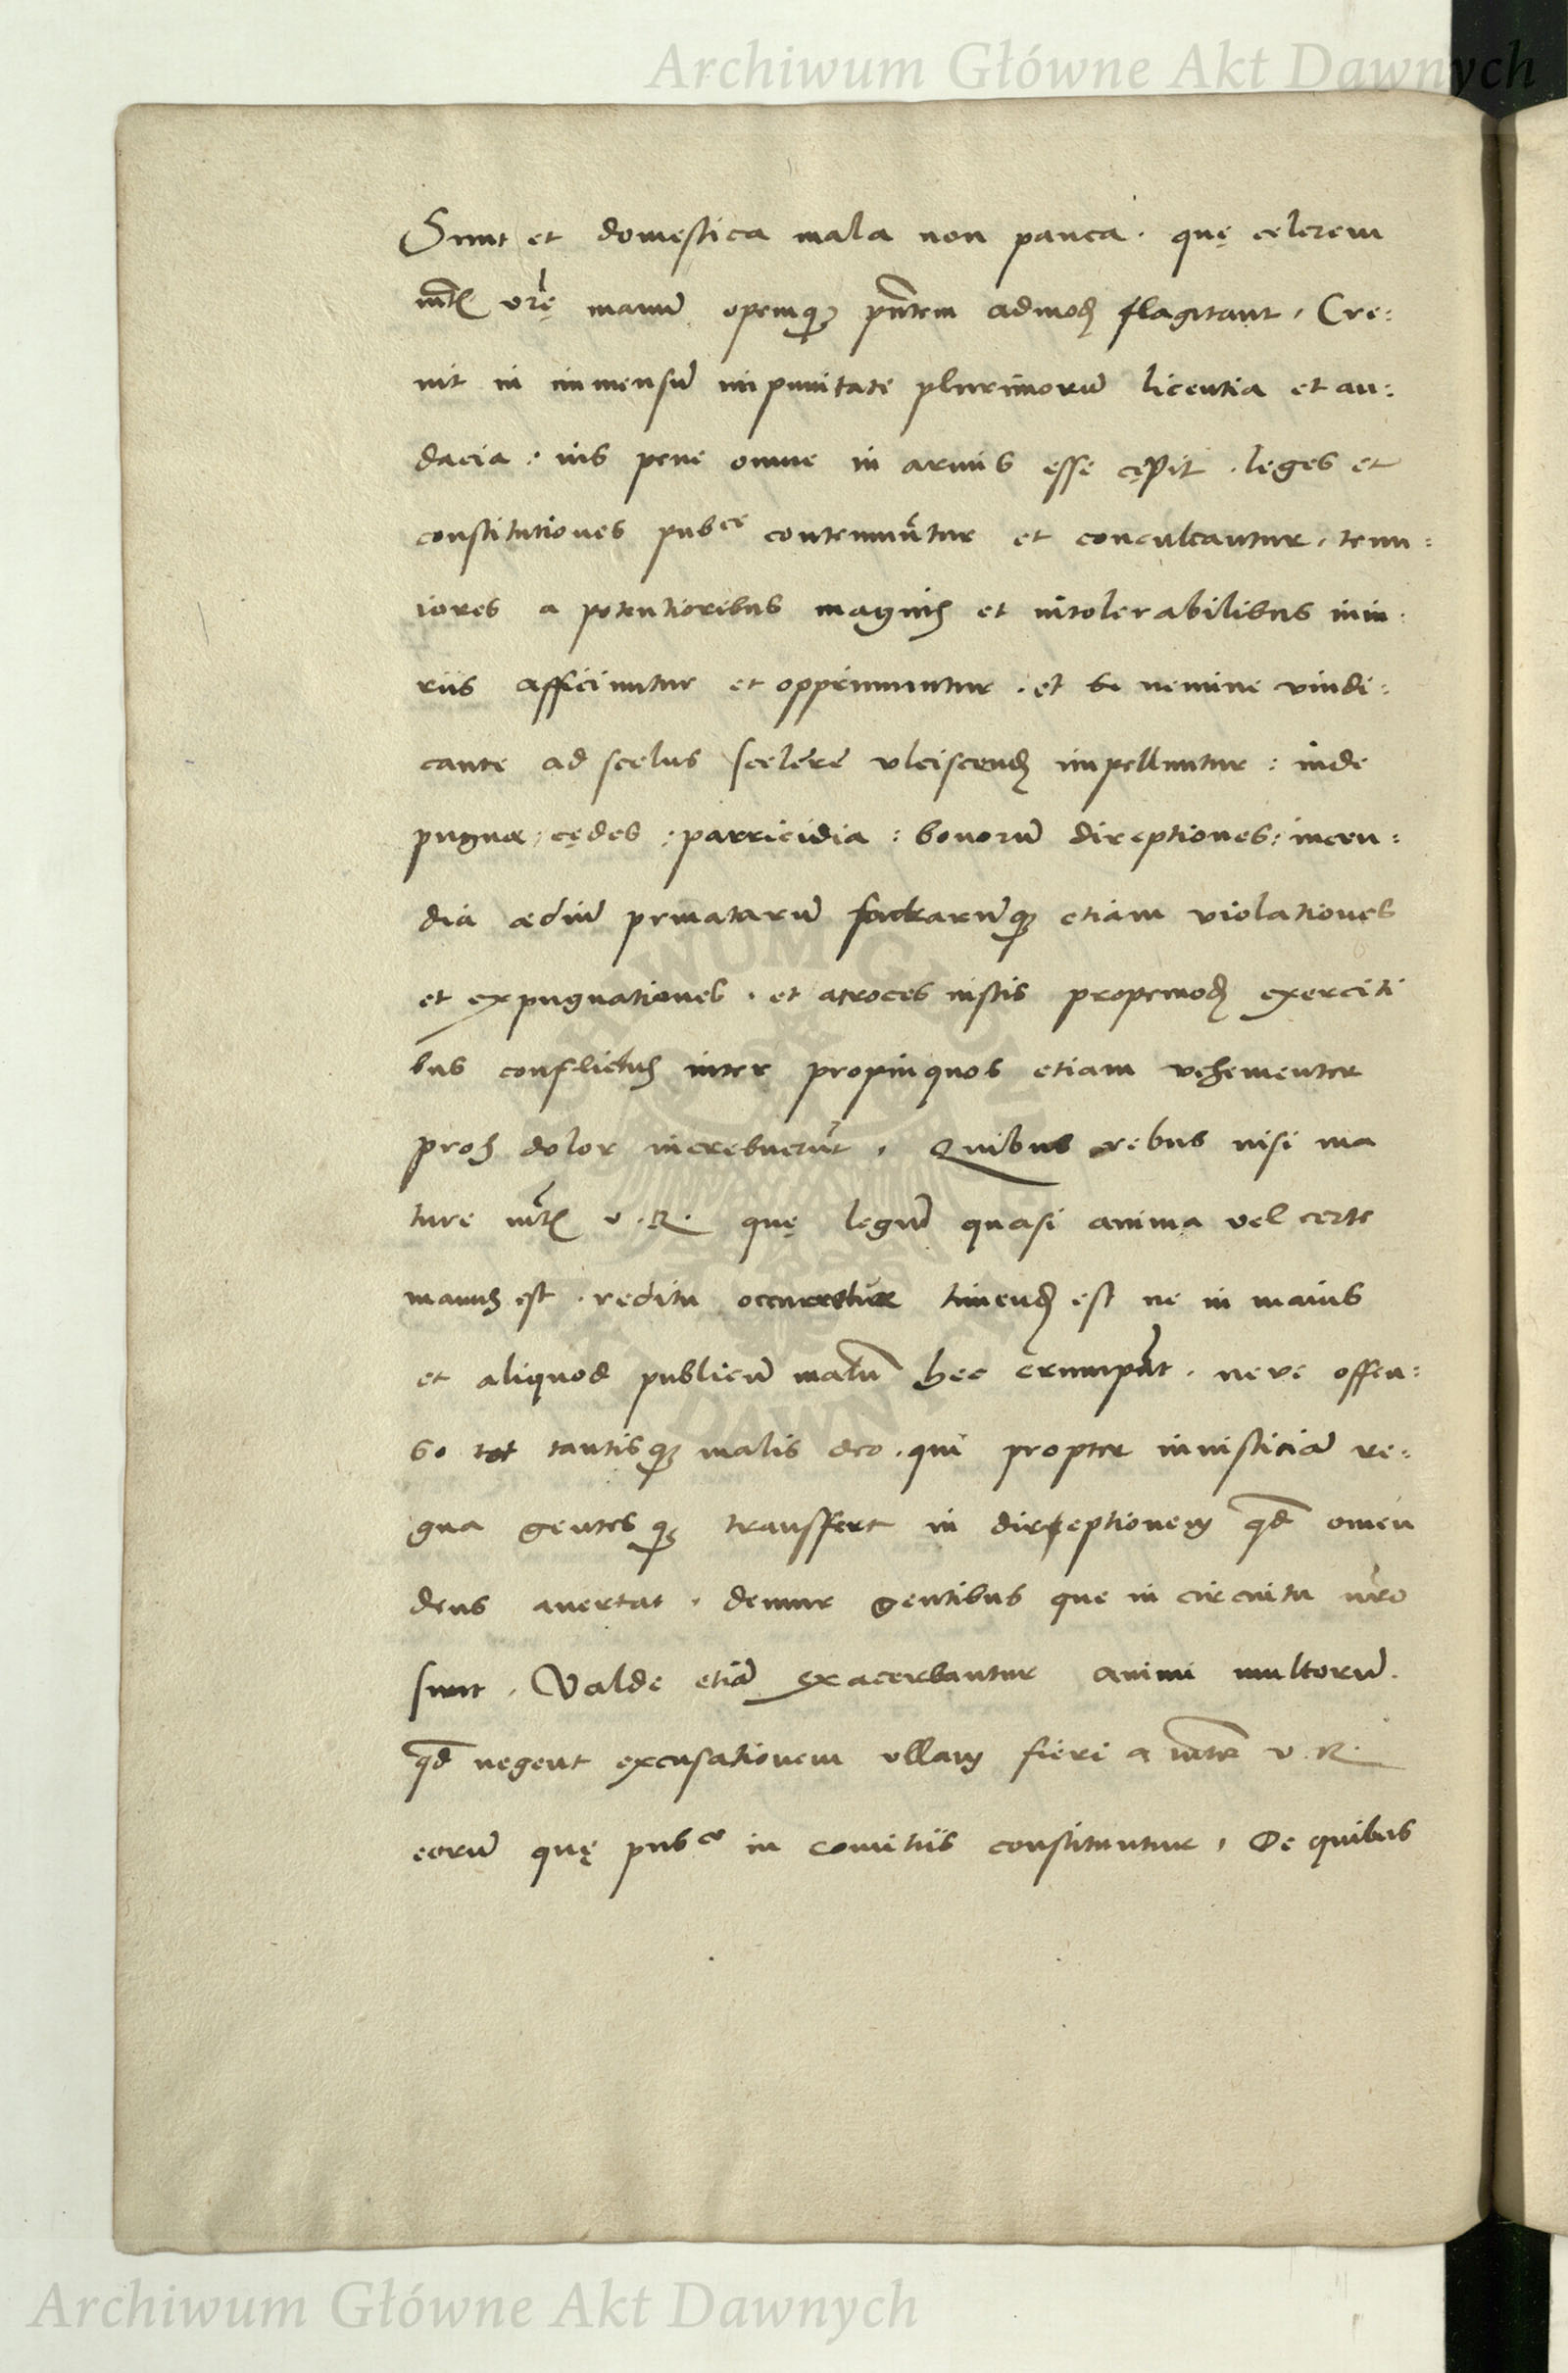 Archiwum Główne Akt Dawnych
Sunt et domestica mala non pauca. quę celerem
mtis vrę manum opemq; pntem admodum flagitant, Cre:
uit in immensum impunitate plurimorum licentia et au:
dacia: ius pene omne in armis esse cępit. leges et
constitutiones pubce contemnuntur et conculcantur, tenu:
iores a potentioribus magnis et intolerabilibus iniu:
riis afficiuntur et opprimuntur. et nemine vindi:
cante ad scelus scelere vlciscendum impelluntur: inde
pugnæ, cędes: parricidia: bonorum direptiones: incen:
dia ædium priuatarum sacrarumq; etiam violationes
et expugnationes. et atroces iustis propemodum exerciti
bus conflictus inter propinquos etiam vehementer
proh dolor increbuerunt, Quibus rebus nisi ma
ture mtis v. R. quę legum quasi anima vel certe
manus est. reditu occurretur timendum est ne in maius
et aliquod publicum malum hec erumpant. neve offen:
so tot tantisq; malis deo. qui propter iniusticiam re:
gna gentesq; transfert in direptionem qd omen
deus auertat, demur gentibus que in circuitu nro
sunt, Valde etiam exacerbantur animi multorum.
qd negent excusationem vllam fieri a mte v. R.
eorum quę pubce in comitiis constituntur, De quibus
Archiwum Główne Akt Dawnych